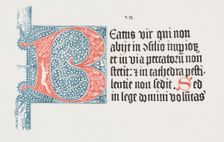 VII
Beatus vir qui non
abijt in ꝯsilio impioꝝ
et in via peccatorū non
stetit: et in cathedra pesti-
lentie non sedit. Sed
in lege domini volūtas